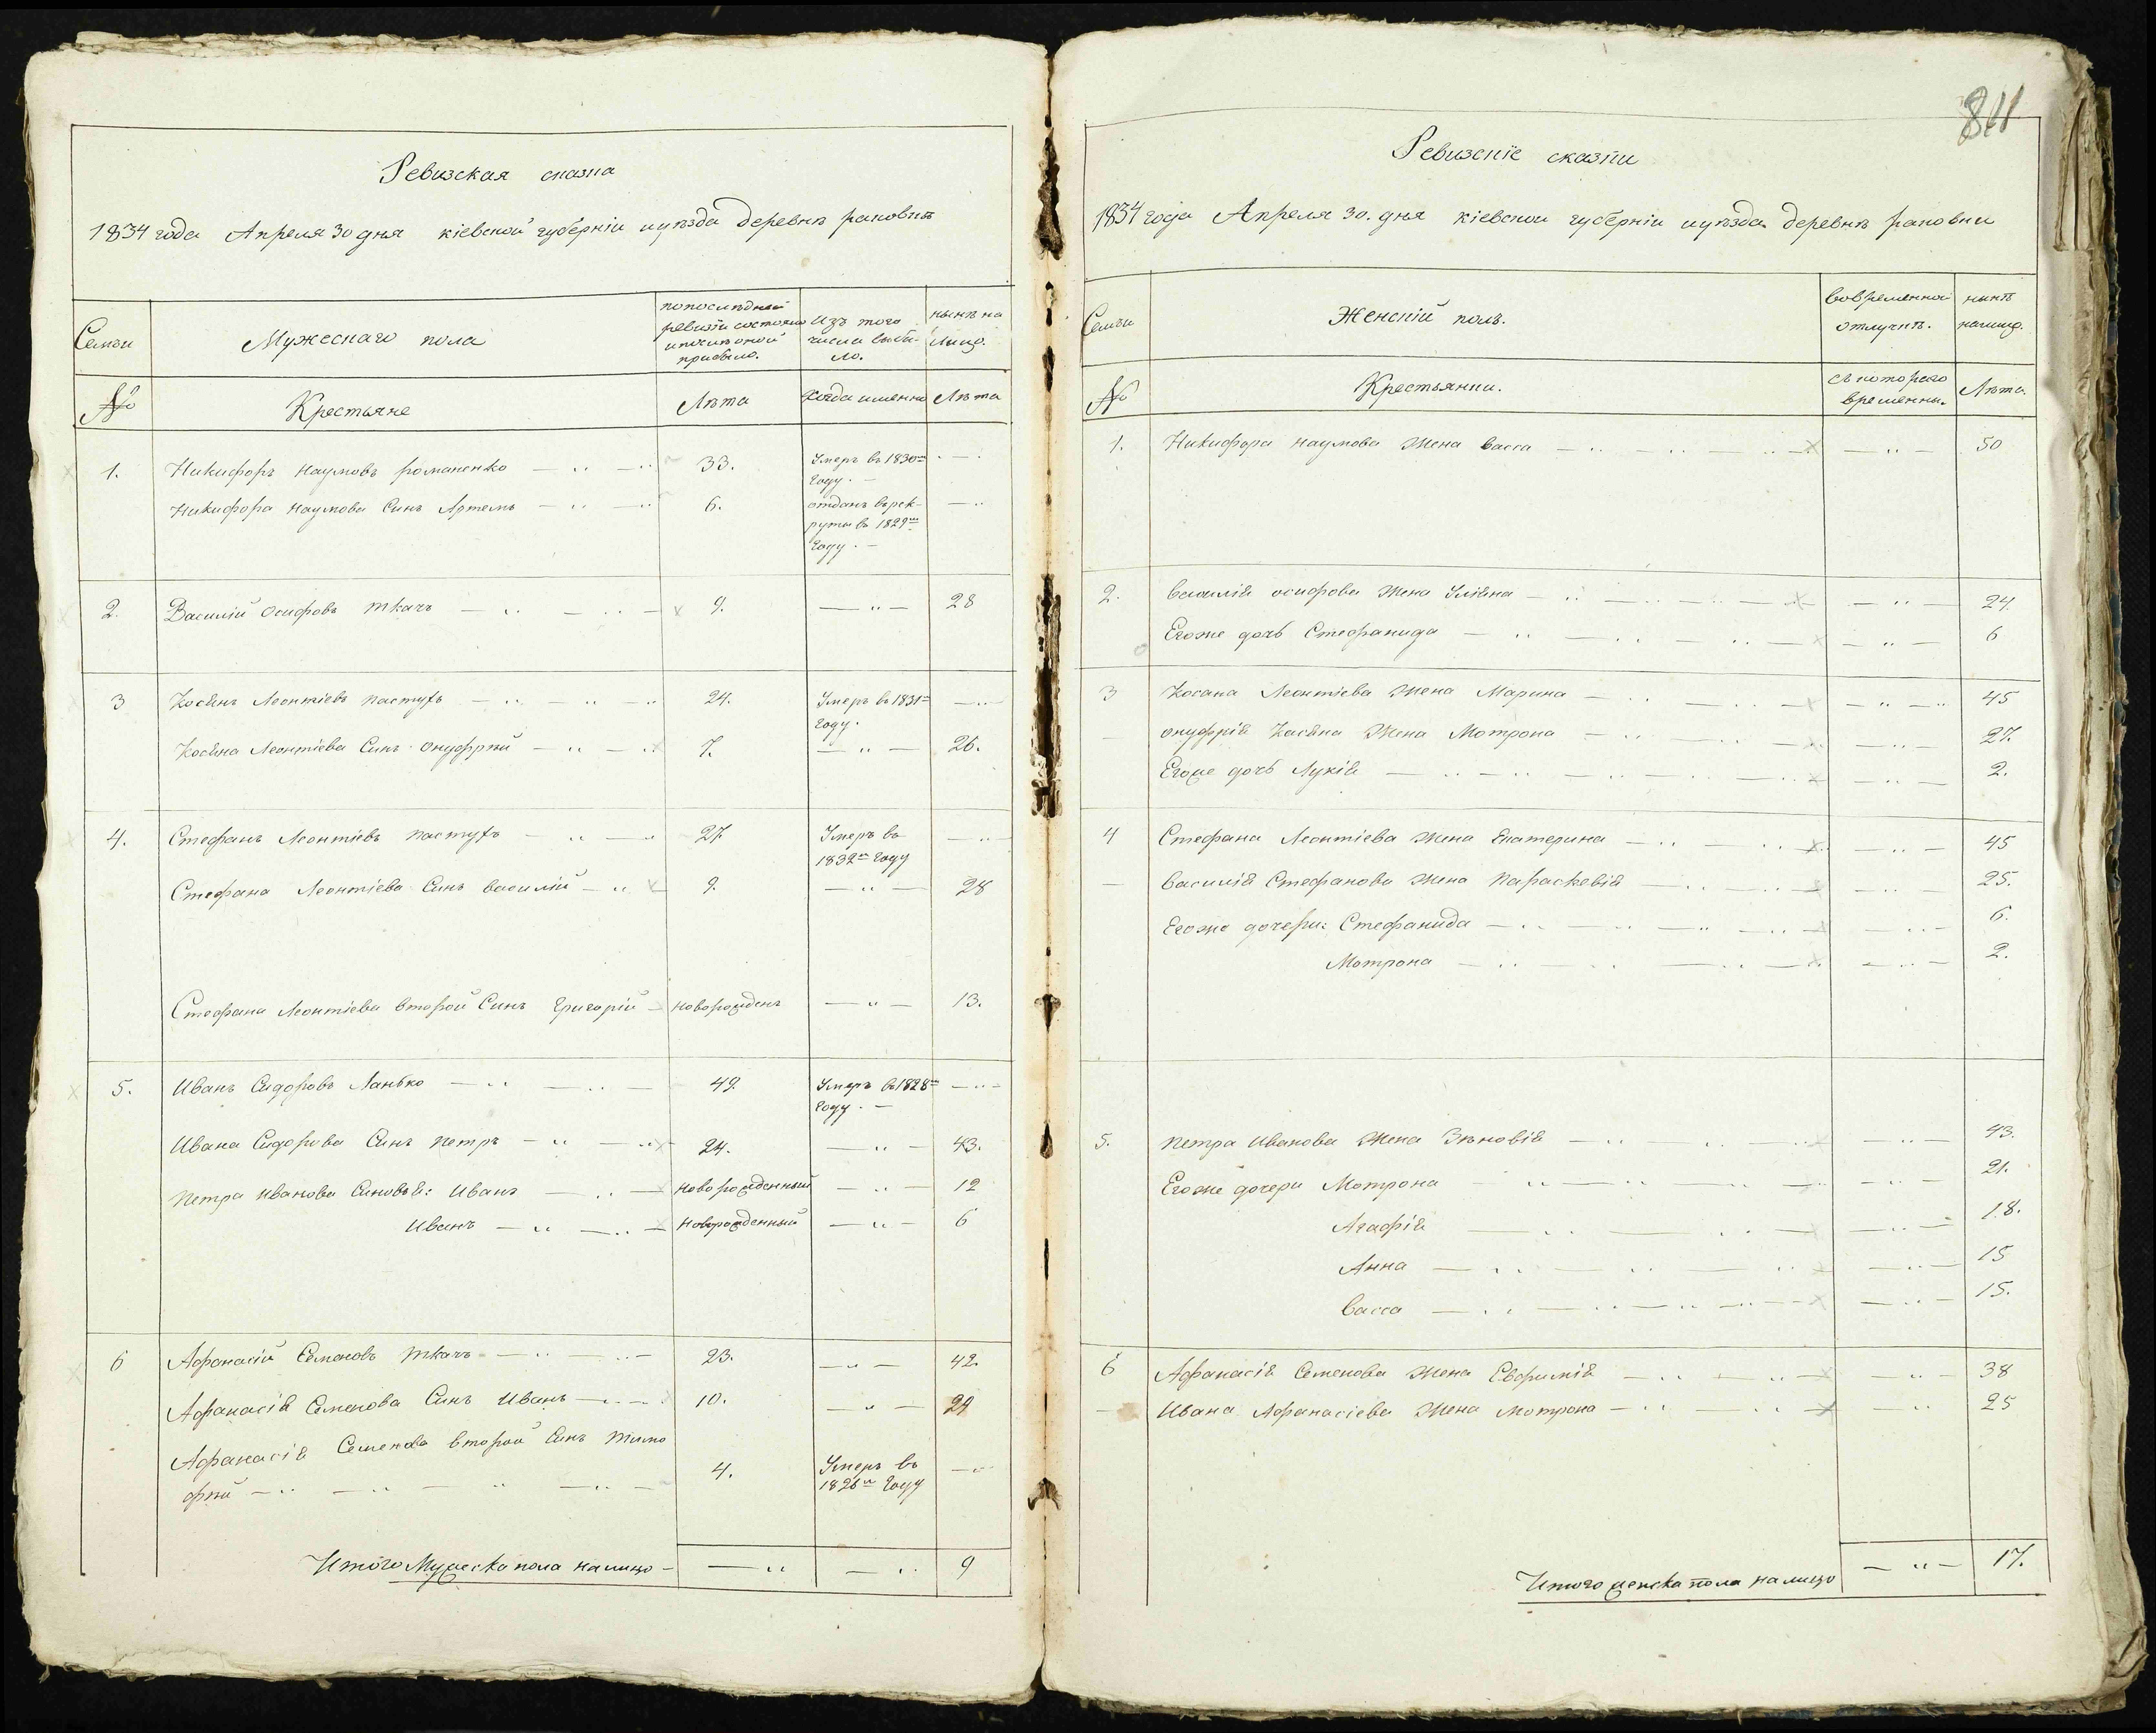 Ревизская сказка
1834 года Апреля 30 дня кіевской губерніи иуѣзда деревнѣ раковнѣ
Семьи
Мужескаго пола
попослѣдней ревизіи состояло ипослѣ оной прибыло.
Изъ того числа выбыло.
нынѣ на лицо.
№
Крестьяне
Лѣта
Когда именно
Лѣта
1. Никифоръ Наумовъ романенко 33. Умеръ въ 1830м
году.
Никифора Наумова Сынъ Артемъ 6. отданъ врек-
руты в 1829м
году.
2. Василій Осифовъ Ткачъ 9. 28
3 Косянъ Леонтіевъ пастухъ 24. Умеръ въ 1831м
году.
Косяна Леонтіева Синъ Онуфрій 7. 26.
4. Стефанъ Леонтіевъ пастухъ 27 Умеръ въ
1832м году
Стефана Леонтіева Синъ василій 9. 28
Стефана Леонтіева второй Синъ Григорій новорожденъ 13.
5. Иванъ Сидоровъ Ланько 49. Умеръ в 1828м
году.
Ивана Сидорова Синъ петръ 24. 43.
петра иванова Синовья: Иванъ новорожденный 12
Иванъ новорожденный 6
6 Афанасій Семеновъ Ткачъ 23. 42.
Афанасія Семенова Синъ Иванъ 10. 29
Афанасія Семенова второй Синъ Тимо
фій 4. Умеръ въ
1826м году
Итого Мужеска пола налицо 9
841
Ревизскіе сказки
1834 года Апреля 30. дня кіевской губерніи иуѣзда деревнѣ раковки
Семьи
Женскій полъ.
вовременной отлучкѣ.
нынѣ налицо.
№
Крестьянки.
съ котораго времянны.
Лѣта.
1. Никифора наумова Жена васса 50
2. василія осифова Жена Улияна 24
Егоже дочь Стефанида 6
3 Косана Леонтіева Жена Марина 45
онуфрія Касяна Жена Мотрона 27.
Егоже дочь Лукія 2.
4 Стефана Леонтіева Жена Екатерина 45
василія Стефанова Жена параскевія 25.
Егоже дочери: Стефанида 6.
Мотрона 2.
5. петра иванова Жена Зѣновія 43.
Егоже дочери Мотрона 21.
Агафія 18.
Анна 15
васса 15.
6 Афанасія Семенова Жена Евфимія 38
Ивана Афанасіева Жена мотрона 25
Итого женска пола налицо 17.